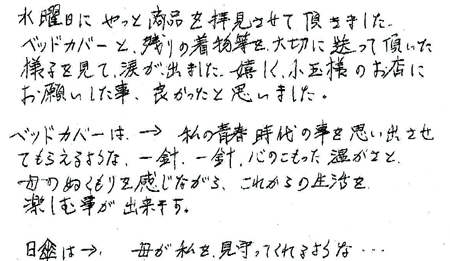 水曜日にやっと商品を拝見させて頂きました。
ベッドカバーと、残りの着物等を大切に送って頂いた
様子を見て、涙が出ました。嬉しく、小玉様のお店に
お願いした事、良かったと思いました。
ベッドカバーは、→ 私の青春時代の事を思い出させ
てもらえるような、一針、一針、心のこもった温かさと、
母のぬくもりを感じながら、これからの生活を
楽しむ事が出来そう。
日傘は→、母が私を、見守ってくれてるような…